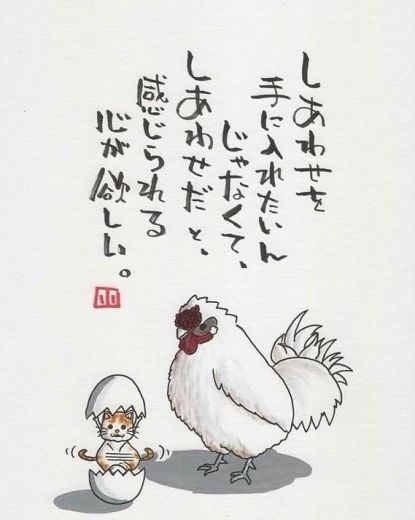 しあわせを
手に入れたいん
じゃなくて、
しあわせだと、
感じられる
心が欲しい。